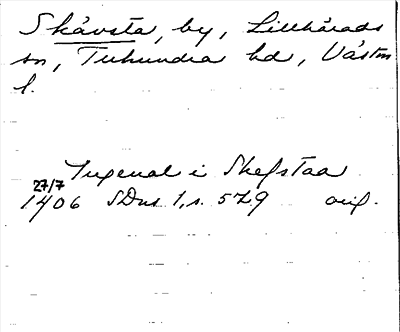 Skävsta, by, Lillhärads
sn, Tuhundra hd, Västm
l.
i Skefstaa
27/7
1406 SDns 1, s. 579 orig.